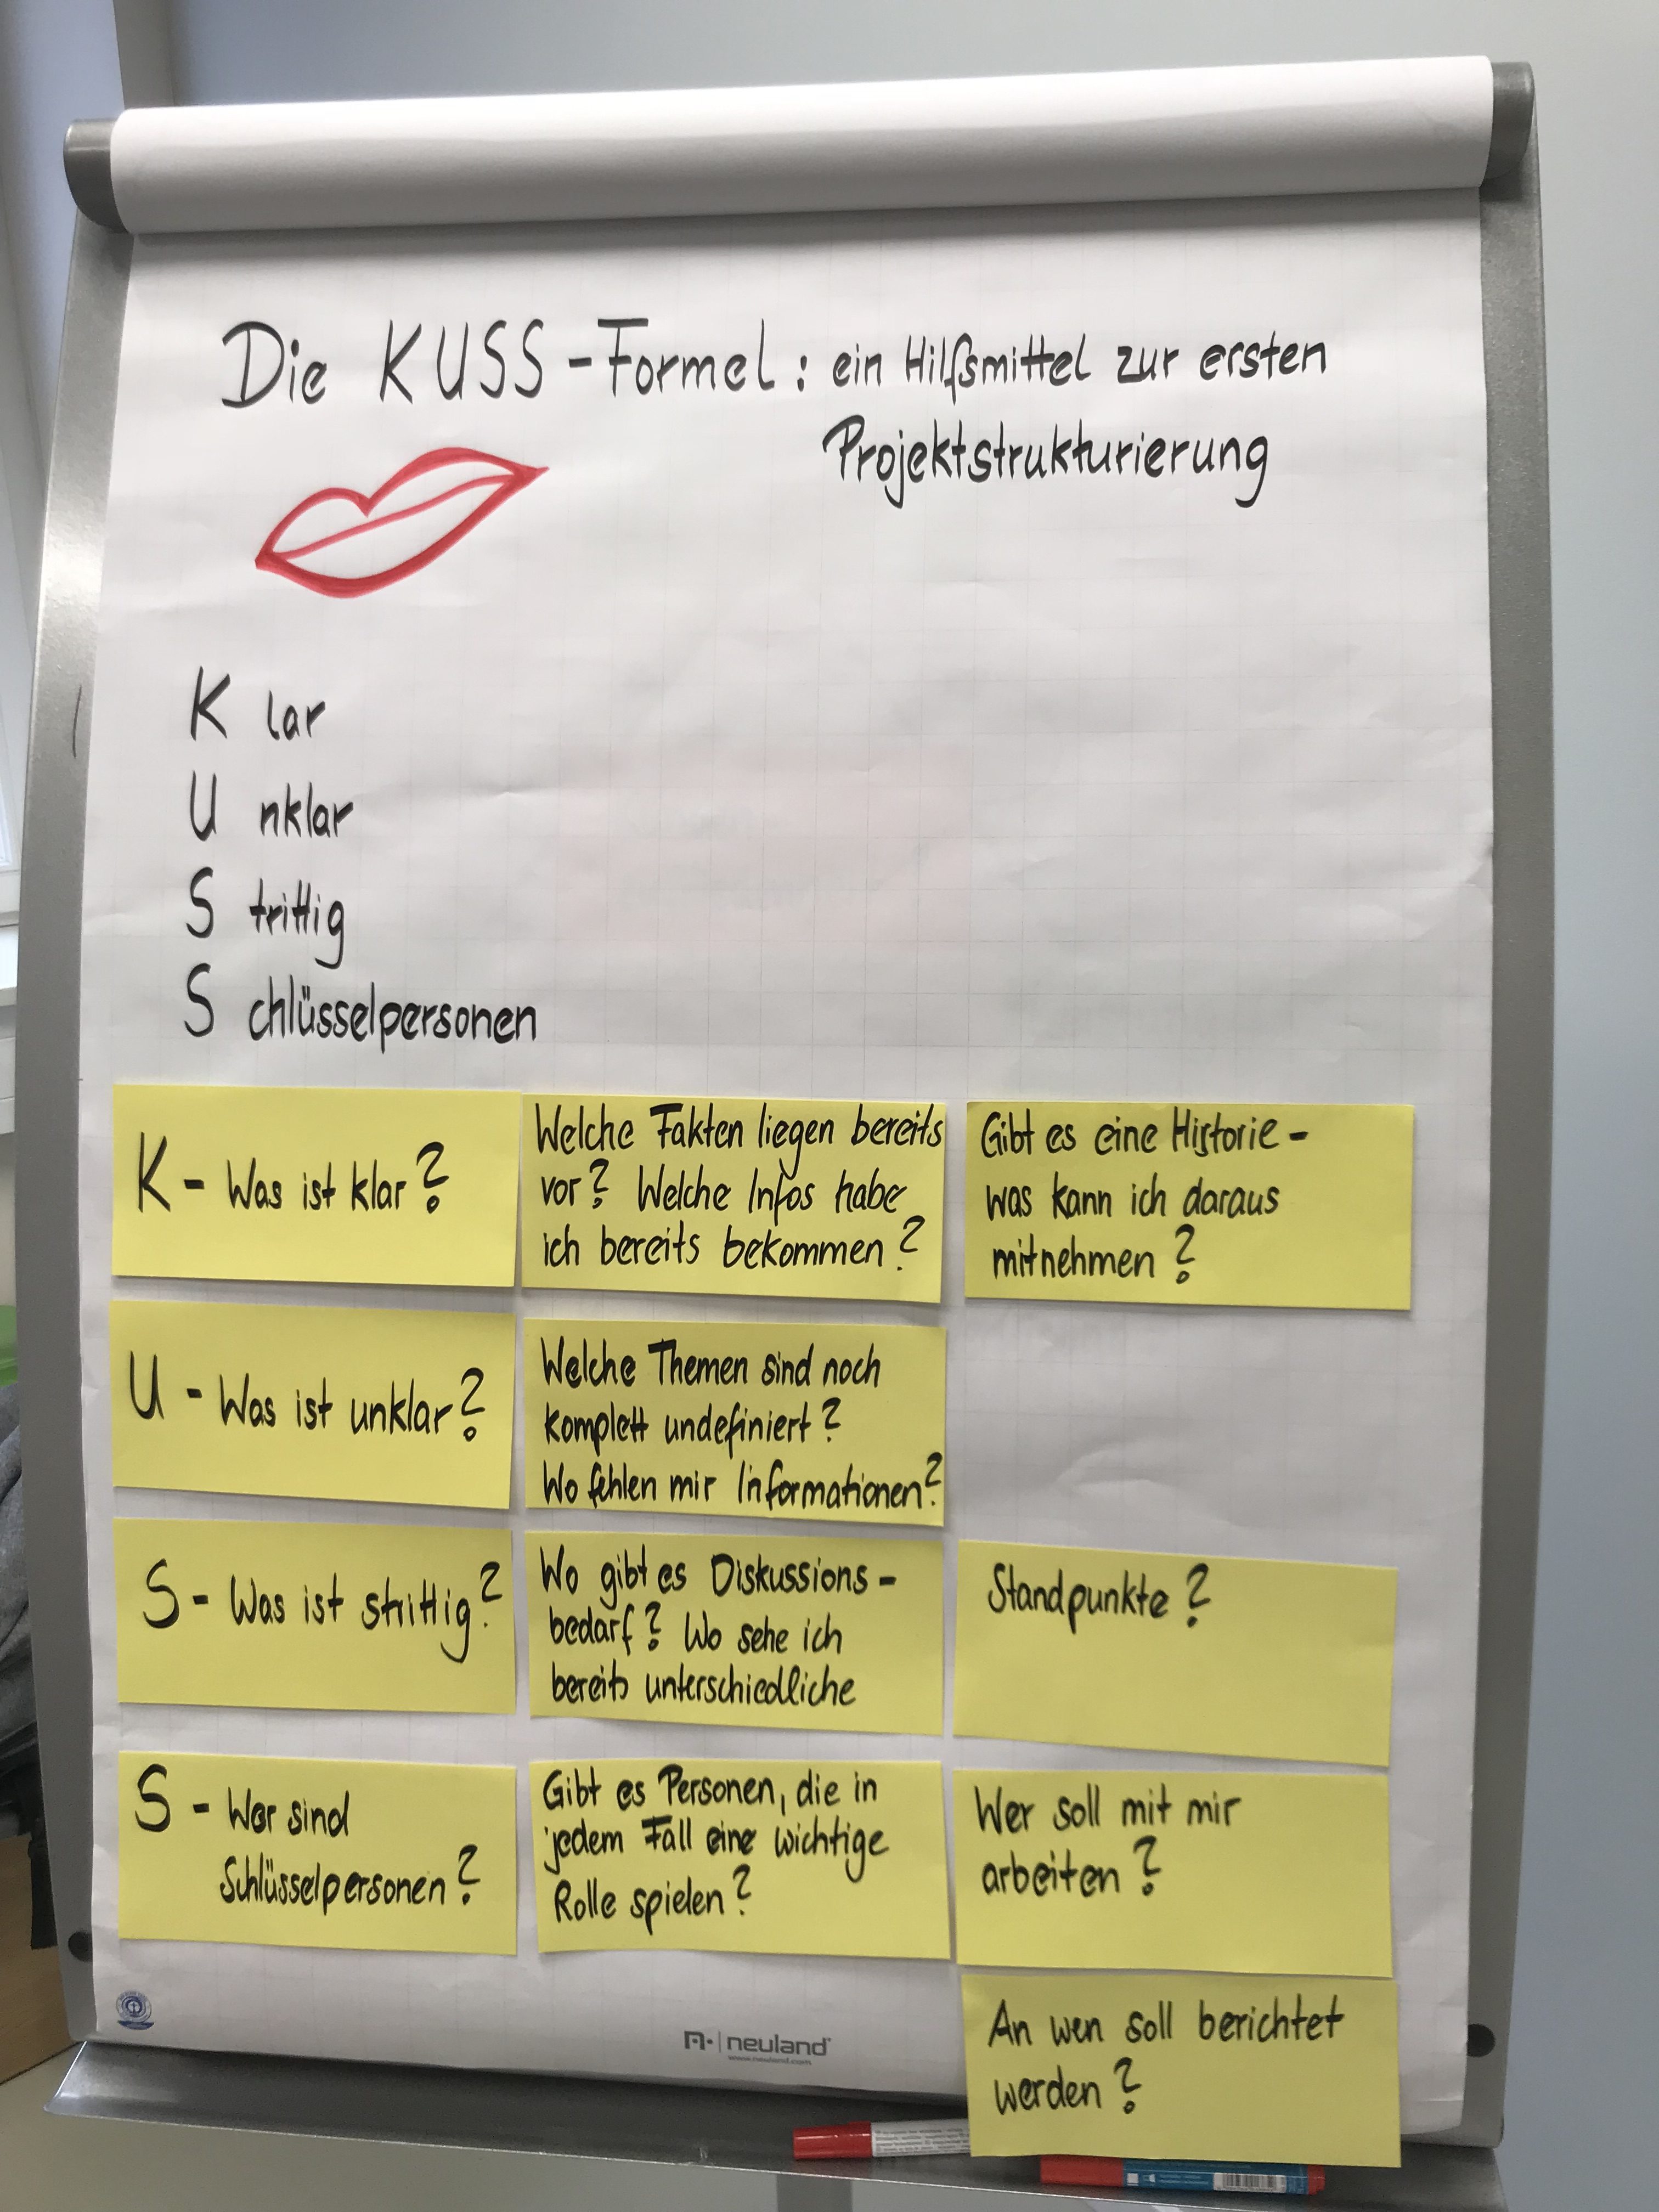 Die KUSS-Formel: ein Hilfsmittel zur ersten
Projektstrukturierung
K lar
U nklar
S trittig
S chlüsselpersonen
K - Was ist klar?
Welche Fakten liegen bereits
vor? Welche Infos habe
ich bereits bekommen?
Gibt es eine Historie -
was kann ich daraus
mitnehmen?
U - Was ist unklar?
Welche Themen sind noch
komplett undefiniert?
Wo fehlen mir Informationen?
S - Was ist strittig?
Wo gibt es Diskussions-
bedarf? Wo sehe ich
bereits unterschiedliche
Standpunkte?
S - Wer sind
Schlüsselpersonen?
Gibt es Personen, die in
jedem Fall eine wichtige
Rolle spielen?
Wer soll mit mir
arbeiten?
An wen soll berichtet
werden?
neuland
www.neuland.com